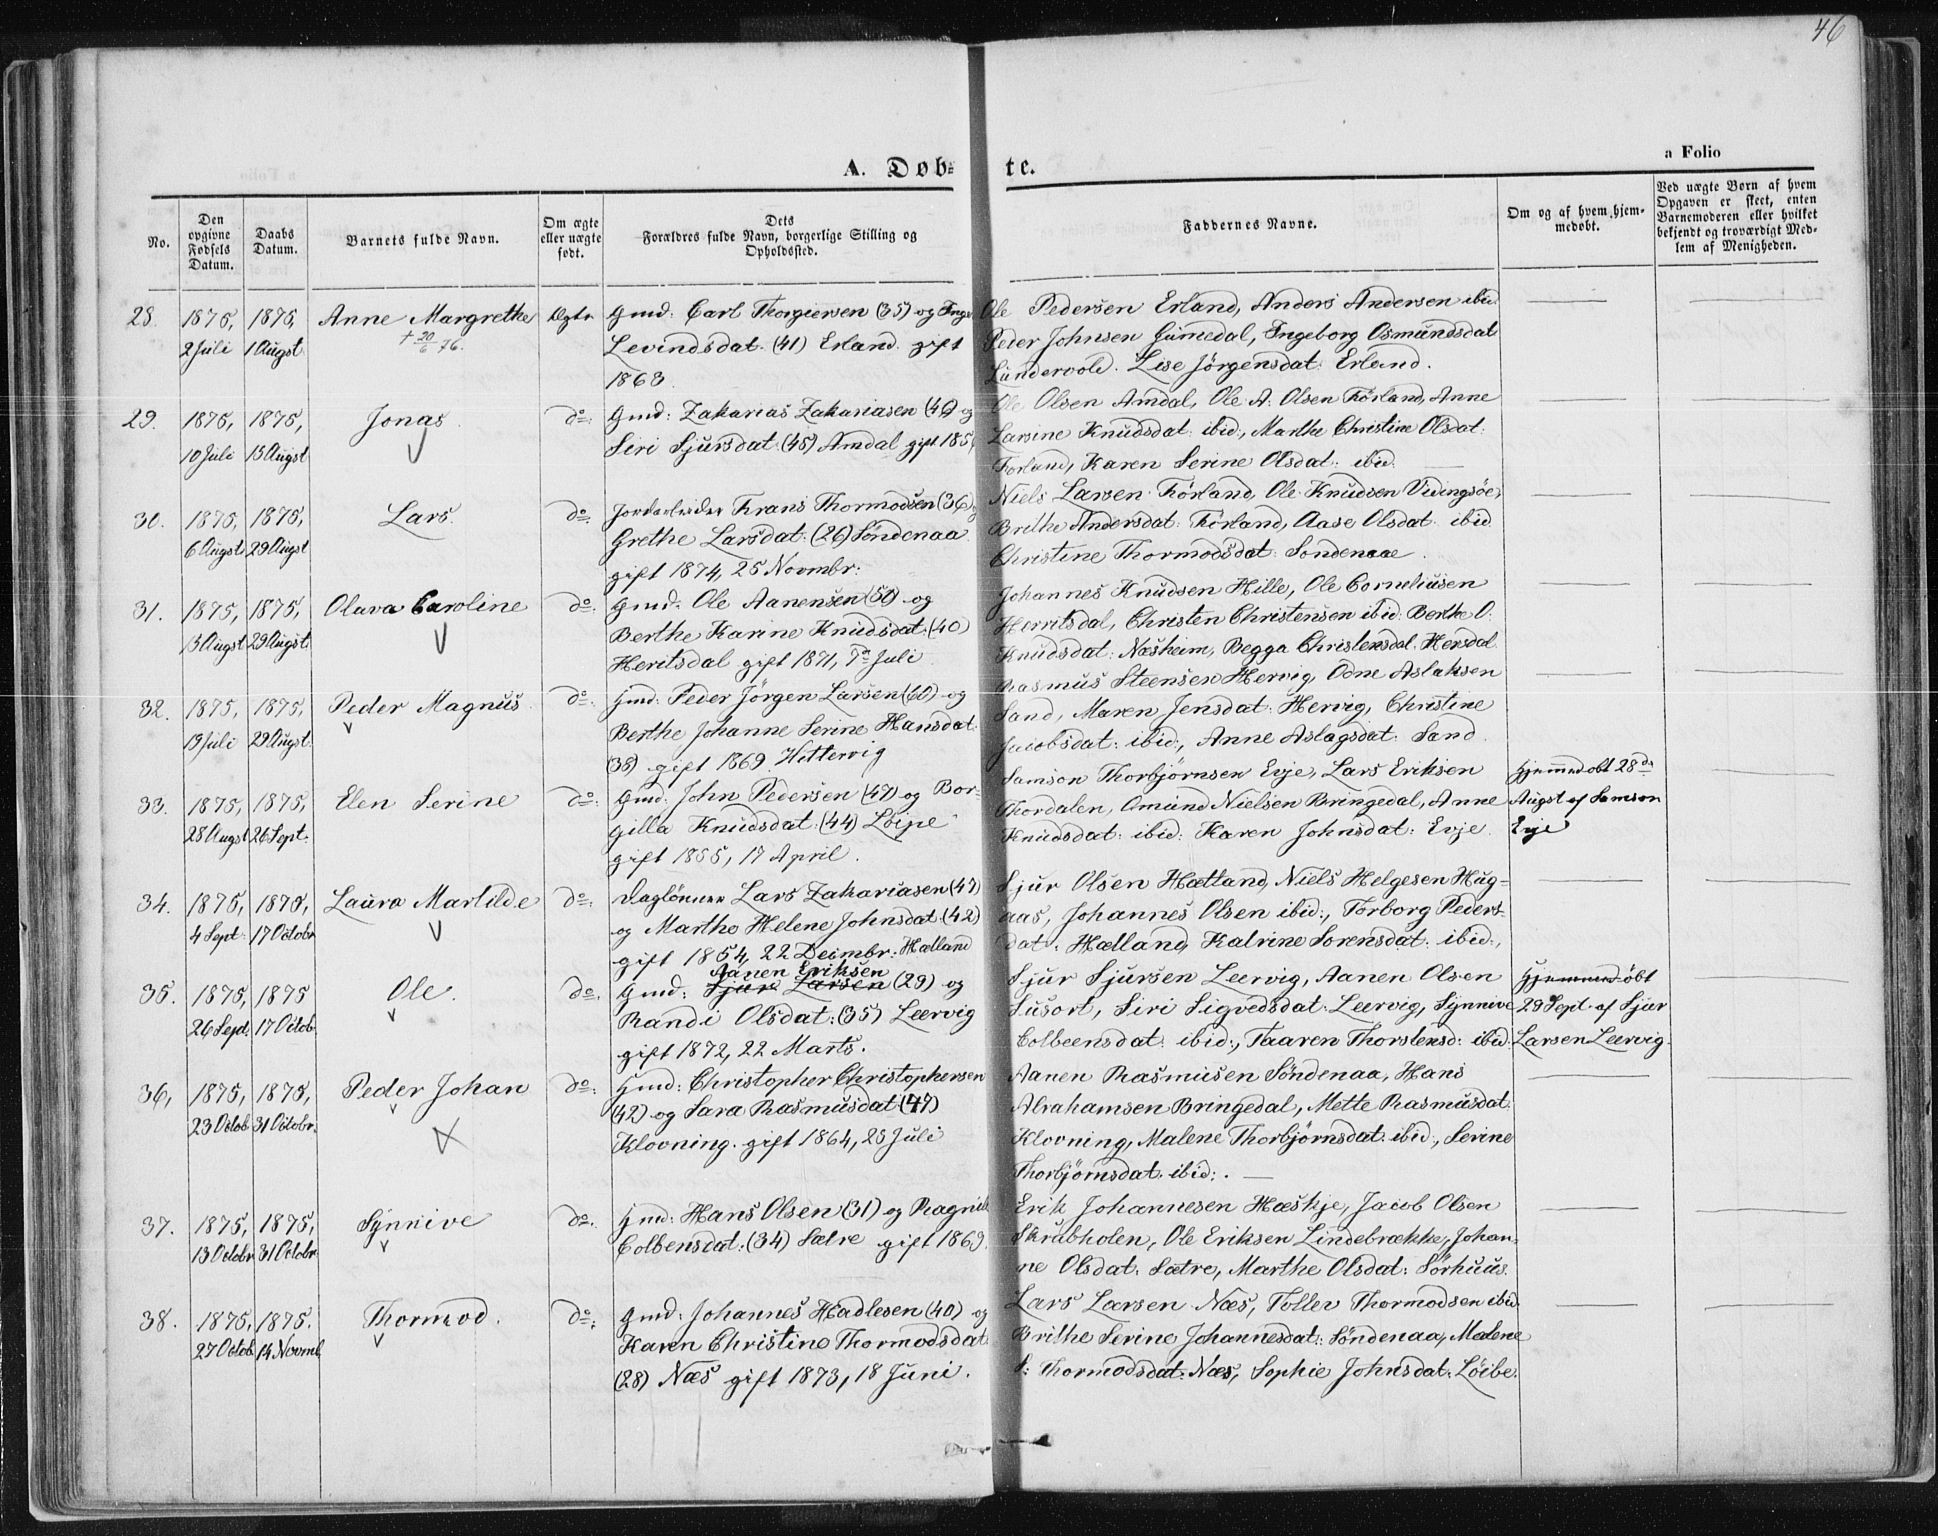 46
A. Døb-te.
a Folio
No.
Den opgivne Fødsels Datum.
Daabs Datum.
Barnets fulde Navn.
Om ægte eller uægte født.
Dets Forældres fulde Navn, borgerlige Stilling og Opholdssted.
Faddernes Navne.
Om og af hvem hjemmedøbt.
Ved uægte Børn af hvem Opgaven er skeet, enten Barnemoderen eller hvilket bekjendt og troværdigt Medlem af Menigheden.
28. 1875, 2 Juli 1875, 1 Augst Anne Margrethe † 20/6 76. Ægte
Gmd: Carl Thorgiersen (35) og Inge
Levindsdat. (41) Erland gift
1863.
Ole Pedersen Erland, Anders Andersen ibid
Peder Johnsen Gumedal, Ingeborg Osmundsdat
Lundervold. Lise Jörgensdat: Erland.
29. 1875, 10 Juli 1875, 15 Augst Jonas do:
Gmd: Zakarias Zakariasen (49) og
Siri Sjursdat (45) Amdal gift 185
Ole Olsen Amdal, Ole A. Olsen Förland, Anne
Larsine Knudsdat ibid, Marthe Christine Olsdat:
Forland, Karen Serine Olsdat: ibid.
30. 1875, 6 Augst 1875, 29 Augst Lars. do
Jordarbeider Frans Thormodsen (36) og
Grethe Larsdat: (26) Söndenaa
gift 1874, 25 Novmbr:
Niels Larsen Förland, Ole Knudsen Vidingsöe,
Brithe Andersdat: Förland, Aase Olsdat ibid
Christine Thormodsdat: Sondenaae.
31. 1875, 3 Augst 1875, 29 Augst Olava Caroline do:
Gmd: Ole Aanensen (50) og
Berthe Karine Knudsdat: (40)
Heritsdal gift 1871, 7de Juli
Johannes Knudsen Hille, Ole Corneliusen
Herritsdal, Christen Christensen ibid: Berthe O:
Knudsdat: Næsheim, Begga Christensdat. Hersdal
32. 1875, 19 Juli 1875, 29 Augst. Peder Magnus do:
Gmd: Peder Jörgen Larsen (60) og
Berthe Johanne Serine Hansdat
(38) gift 1869 Hittervig
Rasmus Steensen Hervig, Odne Aslaksen
Sand, Maren Jensdat: Hervig, Christine
Jacobsdat: ibid, Anne Aslagsdat: Sand
33. 1875, 28 Augst 1875, 26 Sept. Elen Serine do:
Gmd: John Pedersen (47) og Bor-
gilla Knudsdat: (44) Löipe
gift 1855, 17 April.
Samson Thorbjörnsen Evje, Lars Eriksen
Thordalen, Omund Nielsen Bringedal, Anne
Knudsdat: ibid: Karen Johnsdat: Evje
Hjemmedöbt 28de
Augst af Samson
Evje
34. 1875, 4 Sept. 1875, 17 Octobr Laura Martilde do:
Daglönner Lars Zakariasen (47)
og Marthe Helene Johnsdat (42)
gift 1854, 22 Decmbr: Hætland
Sjur Olsen Hætland, Niels Helgesen Hug-
aas, Johannes Olsen ibid:, Torborg Peders-
dat: Hætland, Katrine Sorensdat: ibid:,
35. 1875, 26 Sept. 1875 17 Octob. Ole. do.
Aanen Eriksen
Gmd: Sjur Larsen (29) og
Randi Olsdat: (35) Leervig
gift 1872, 22 Marts.
Sjur Sjursen Leervig, Aanen Olsen
Susort, Siri Sigvedsdat: Leervig, Synnive
Colbeensdat: ibid:, Taaren Thorstensd: ibid:
Hjemmedöbt
29 Sept. af Sjur
Larsen Leervig.
36, 1875, 23 Octob 1875, 31 Octobr. Peder Johan do:
Gmd: Christopher Christophersen
(42) og Sara Rasmusdat: (47)
Klovning. gift 1864, 25 Juli
Aanen Rasmusen Söndenaa, Hans
Abrahamsen Bringedal, Mette Rasmusdat:
Klovning, Malene Thorbjörnsdat. ibid:, Serine
Thorbjörnsdat. ibid:.
37. 1875, 13 Octobr 1875, 31 Octobr Synnive do.
Gmd: Hans Olsen (31) og Ragnild
Colbensdat: (34) Sætre gift 1869.
Erik Johannesen Hæskje, Jacob Olsen
Skrubholen, Ole Eriksen Lindebrække, Johan-
ne Olsdat: Sætre, Marthe Olsdat: Sörhuus.
38. 1875, 27 Octob. 1875. 14 Novmb Thormod. do:
Gmd: Johannes Hadlesen (40) og
Karen Christine Thormodsdat
(28) Næs gift 1873, 18 Juni.
Lars Larsen Næs, Tollev Thormodsen ibid
Brithe Serine Johannesdat: Söndenaa, Malene
S: Thormodsdat: Næs, Sophie Johnsdat: Löibe.